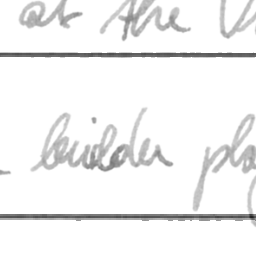 at the
builder